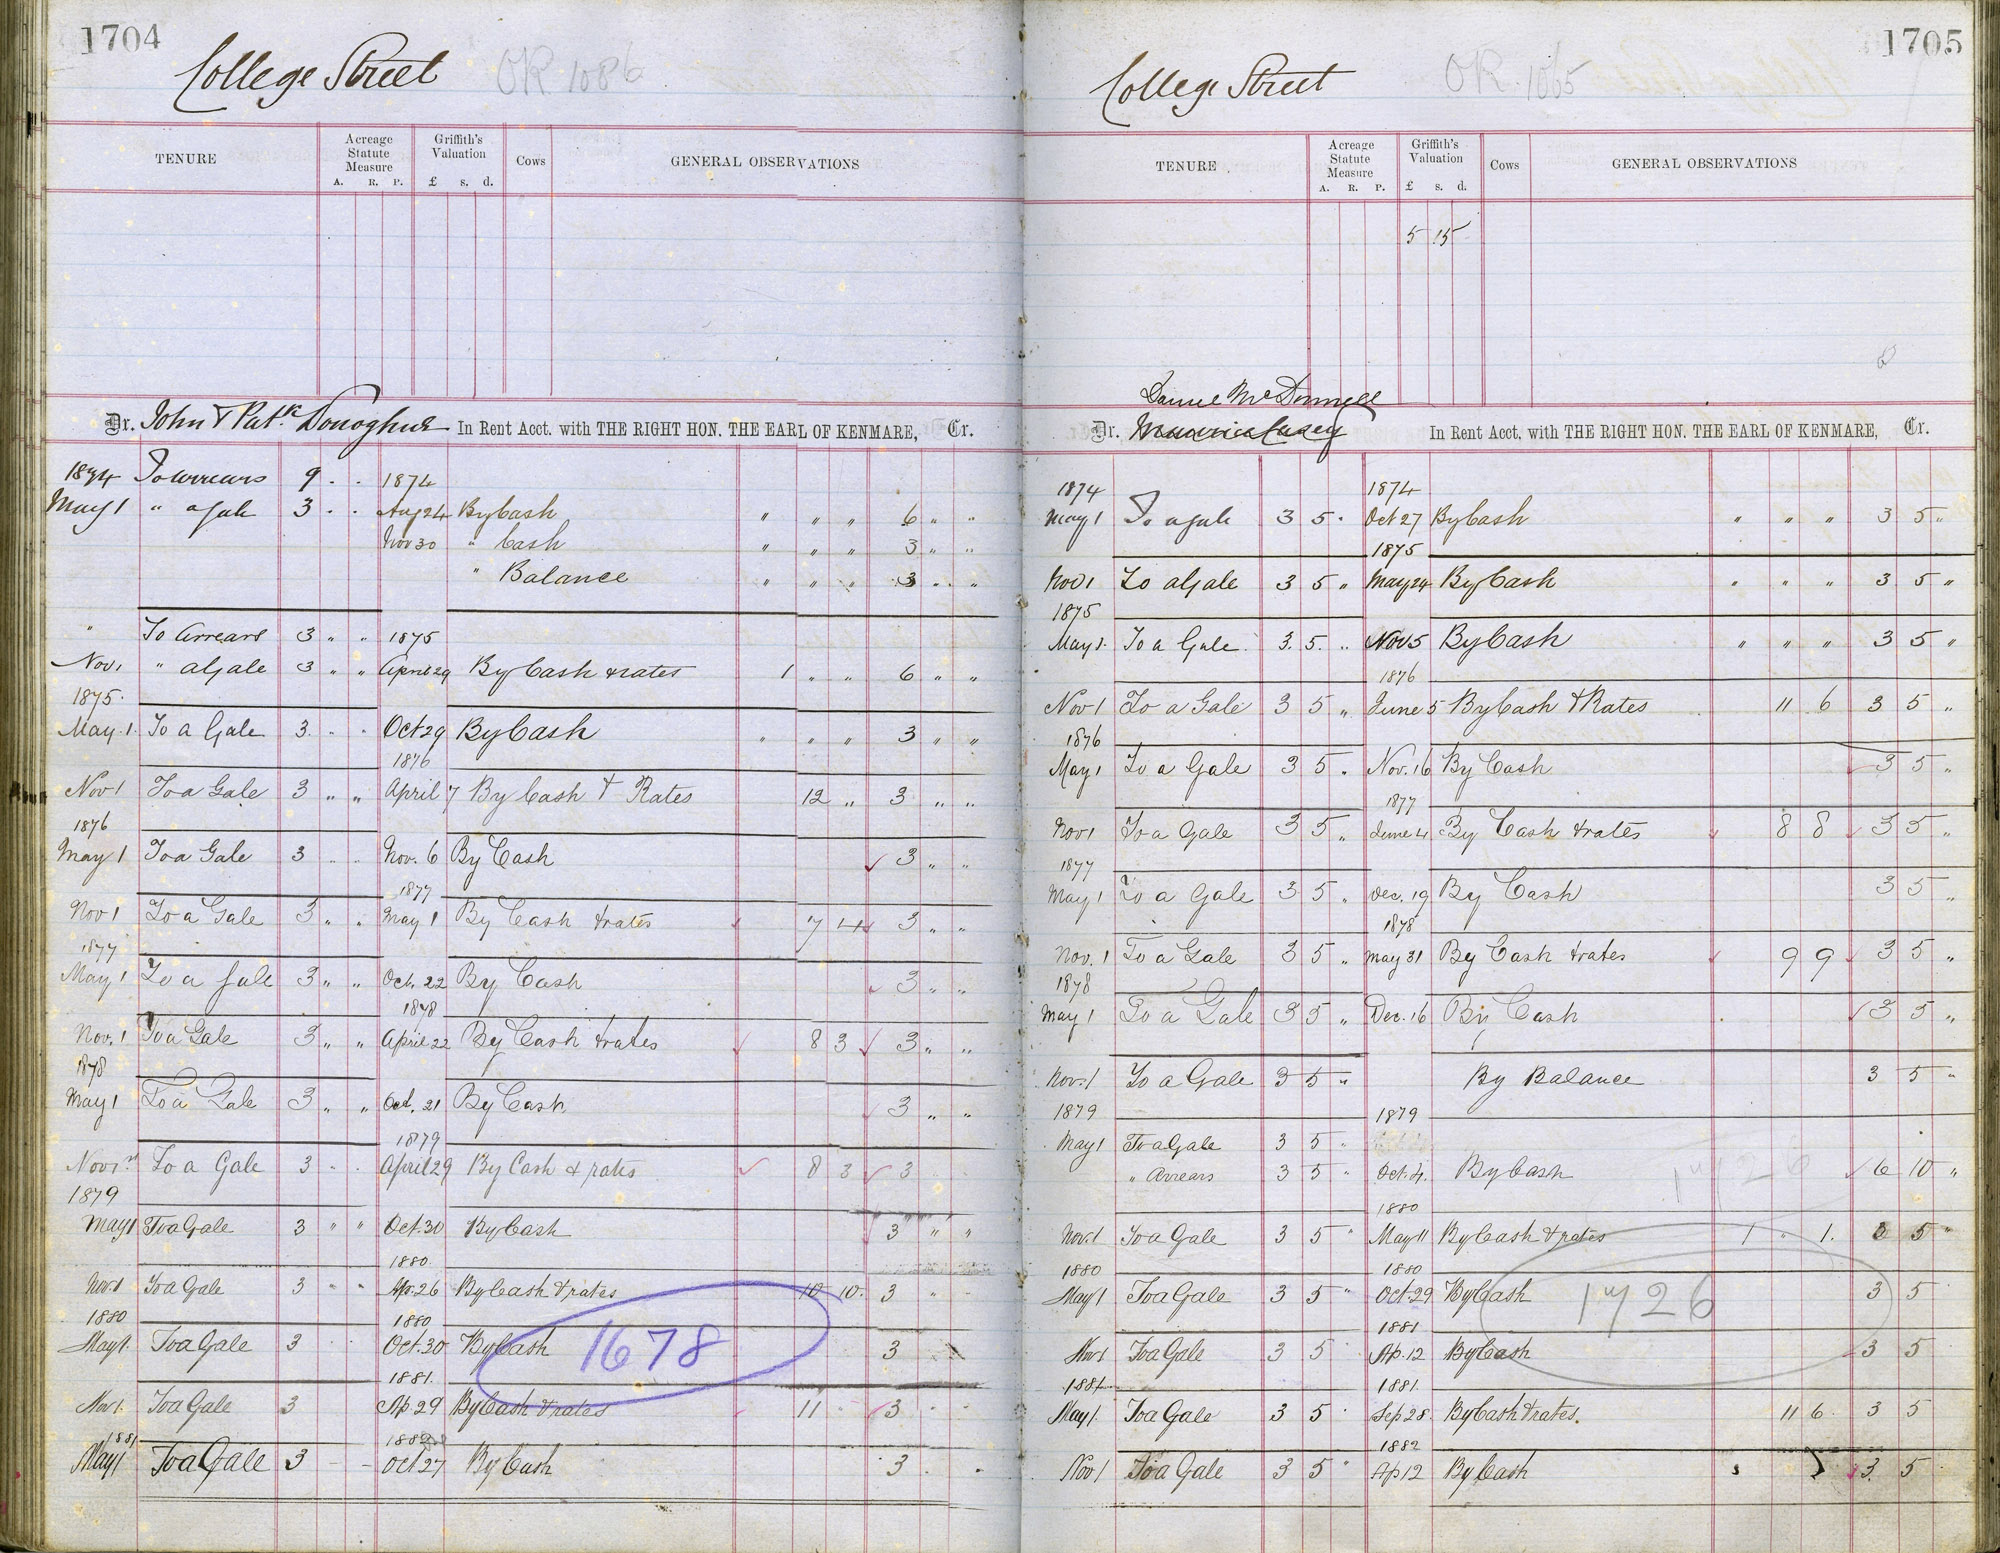 1704
College Street OR 1086
TENURE Acreage Statute Measure Griffith's Valuation Cows GENERAL OBSERVATIONS
A. R. P. £ s. d.
Dr. John & Patk Donoghue In Rent Acct. with THE RIGHT HON. THE EARL OF KENMARE, Cr.
1874 To arrears 9 . . 1874
May 1 " a Gale 3 . . Aug 24 By Cash " " " 6 " "
Nov 30 " Cash " " " 3 " "
" Balance " " " 3 " "
" To Arrears 3 " " 1875
Nov 1 " a Gale 3 " " April 29 By Cash & rates 1 " " 6 " "
1875
May 1 To a Gale 3 " " Oct 29 By Cash " " " 3 " "
1876
Nov 1 To a Gale 3 " " April 7 By Cash & Rates 12 " 3 " "
1876
May 1 To a Gale 3 " " Nov. 6 By Cash 3 " "
1877
Nov 1 To a Gale 3 " " May 1 By Cash & rates 7 4 3 " "
1877
May 1 To a Gale 3 " " Oct. 22 By Cash 3 " "
1878
Nov. 1 To a Gale 3 " " April 22 By Cash & rates 8 3 3 " "
1878
May 1 To a Gale 3 " " Oct. 21 By Cash 3 " "
1879
Nov 1st To a Gale 3 " " April 29 By Cash & rates 8 3 3
1879
May 1 To a Gale 3 " " Oct. 30 By Cash 3 " "
1880
Nov. 1 To a Gale 3 " " Ap. 26 By Cash & rates 10 10 3 " "
1880 1880
May 1 To a Gale 3 Oct. 30 By Cash 1678 3
1881
Nov 1 To a Gale 3 Ap 29 By Cash & rates 11 3
1881 1882
May 1 To a Gale 3 - - Oct 27 By Cash 3
1705
College Street OR 1065
TENURE Acreage Statute Measure Griffith's Valuation Cows GENERAL OBSERVATIONS
A. R. P. £ s. d.
5 15
Daniel McDonnell
Dr. Maurice Casey In Rent Acct. with THE RIGHT HON. THE EARL OF KENMARE, Cr.
1874 1874
May 1 To a Gale 3 5 " Oct 27 By Cash " " " 3 5 "
1875
Nov 1 To a Gale 3 5 " May 24 By Cash " " " 3 5 "
1875
May 1 To a Gale 3 5 " Nov 5 By Cash " " " 3 5 "
1876
Nov 1 To a Gale 3 5 " June 5 By Cash & Rates 11 6 3 5 "
1876
May 1 To a Gale 3 5 " Nov. 16 By Cash 3 5 "
1877
Nov 1 To a Gale 3 5 " June 4 By Cash & rates 8 8 3 5 "
1877
May 1 To a Gale 3 5 " Dec. 19 By Cash 3 5 "
1878
Nov. 1 To a Gale 3 5 " May 31 By Cash & rates 9 9 3 5 "
1878
May 1 To a Gale 3 5 " Dec. 16 By Cash 3 5 "
Nov. 1 To a Gale 3 5 " By Balance 3 5 "
1879 1879
May 1 To a Gale 3 5 "
" Arrears 3 5 " Oct. 4. By Cash 1726 6 10 "
1880
Nov. 1 To a Gale 3 5 " May 11 By Cash & rates 1 " 1. 3 5 "
1880 1880
May 1 To a Gale 3 5 " Oct. 29 By Cash 1726 3 5
1881
Nov 1 To a Gale 3 5 Ap. 12 By Cash 3 5
1881 1881
May 1 To a Gale 3 5 Sep 28 By Cash & rates. 11 6 3 5
1882
Nov 1 To a Gale 3 5 " Ap 12 By Cash 3. 5